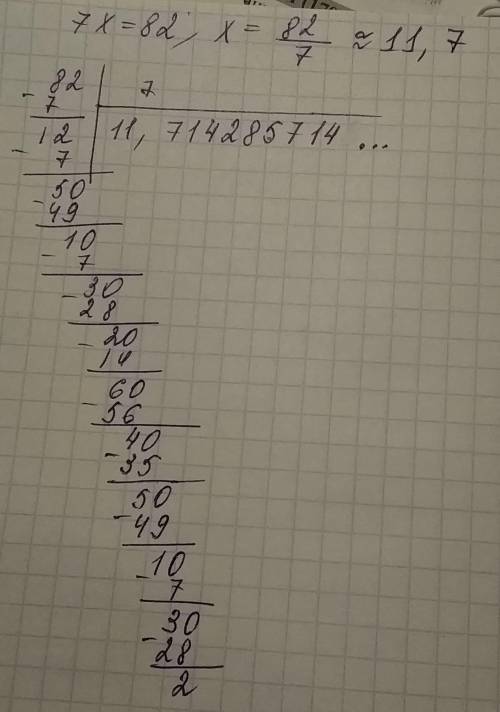 7x=82; x = 82/7 ≈ 11,7
82 | 7
- 7
12 | 11, 714285714 ...
- 7
50
- 49
10
- 7
30
- 28
20
- 14
60
- 56
40
- 35
50
- 49
10
- 7
30
- 28
2